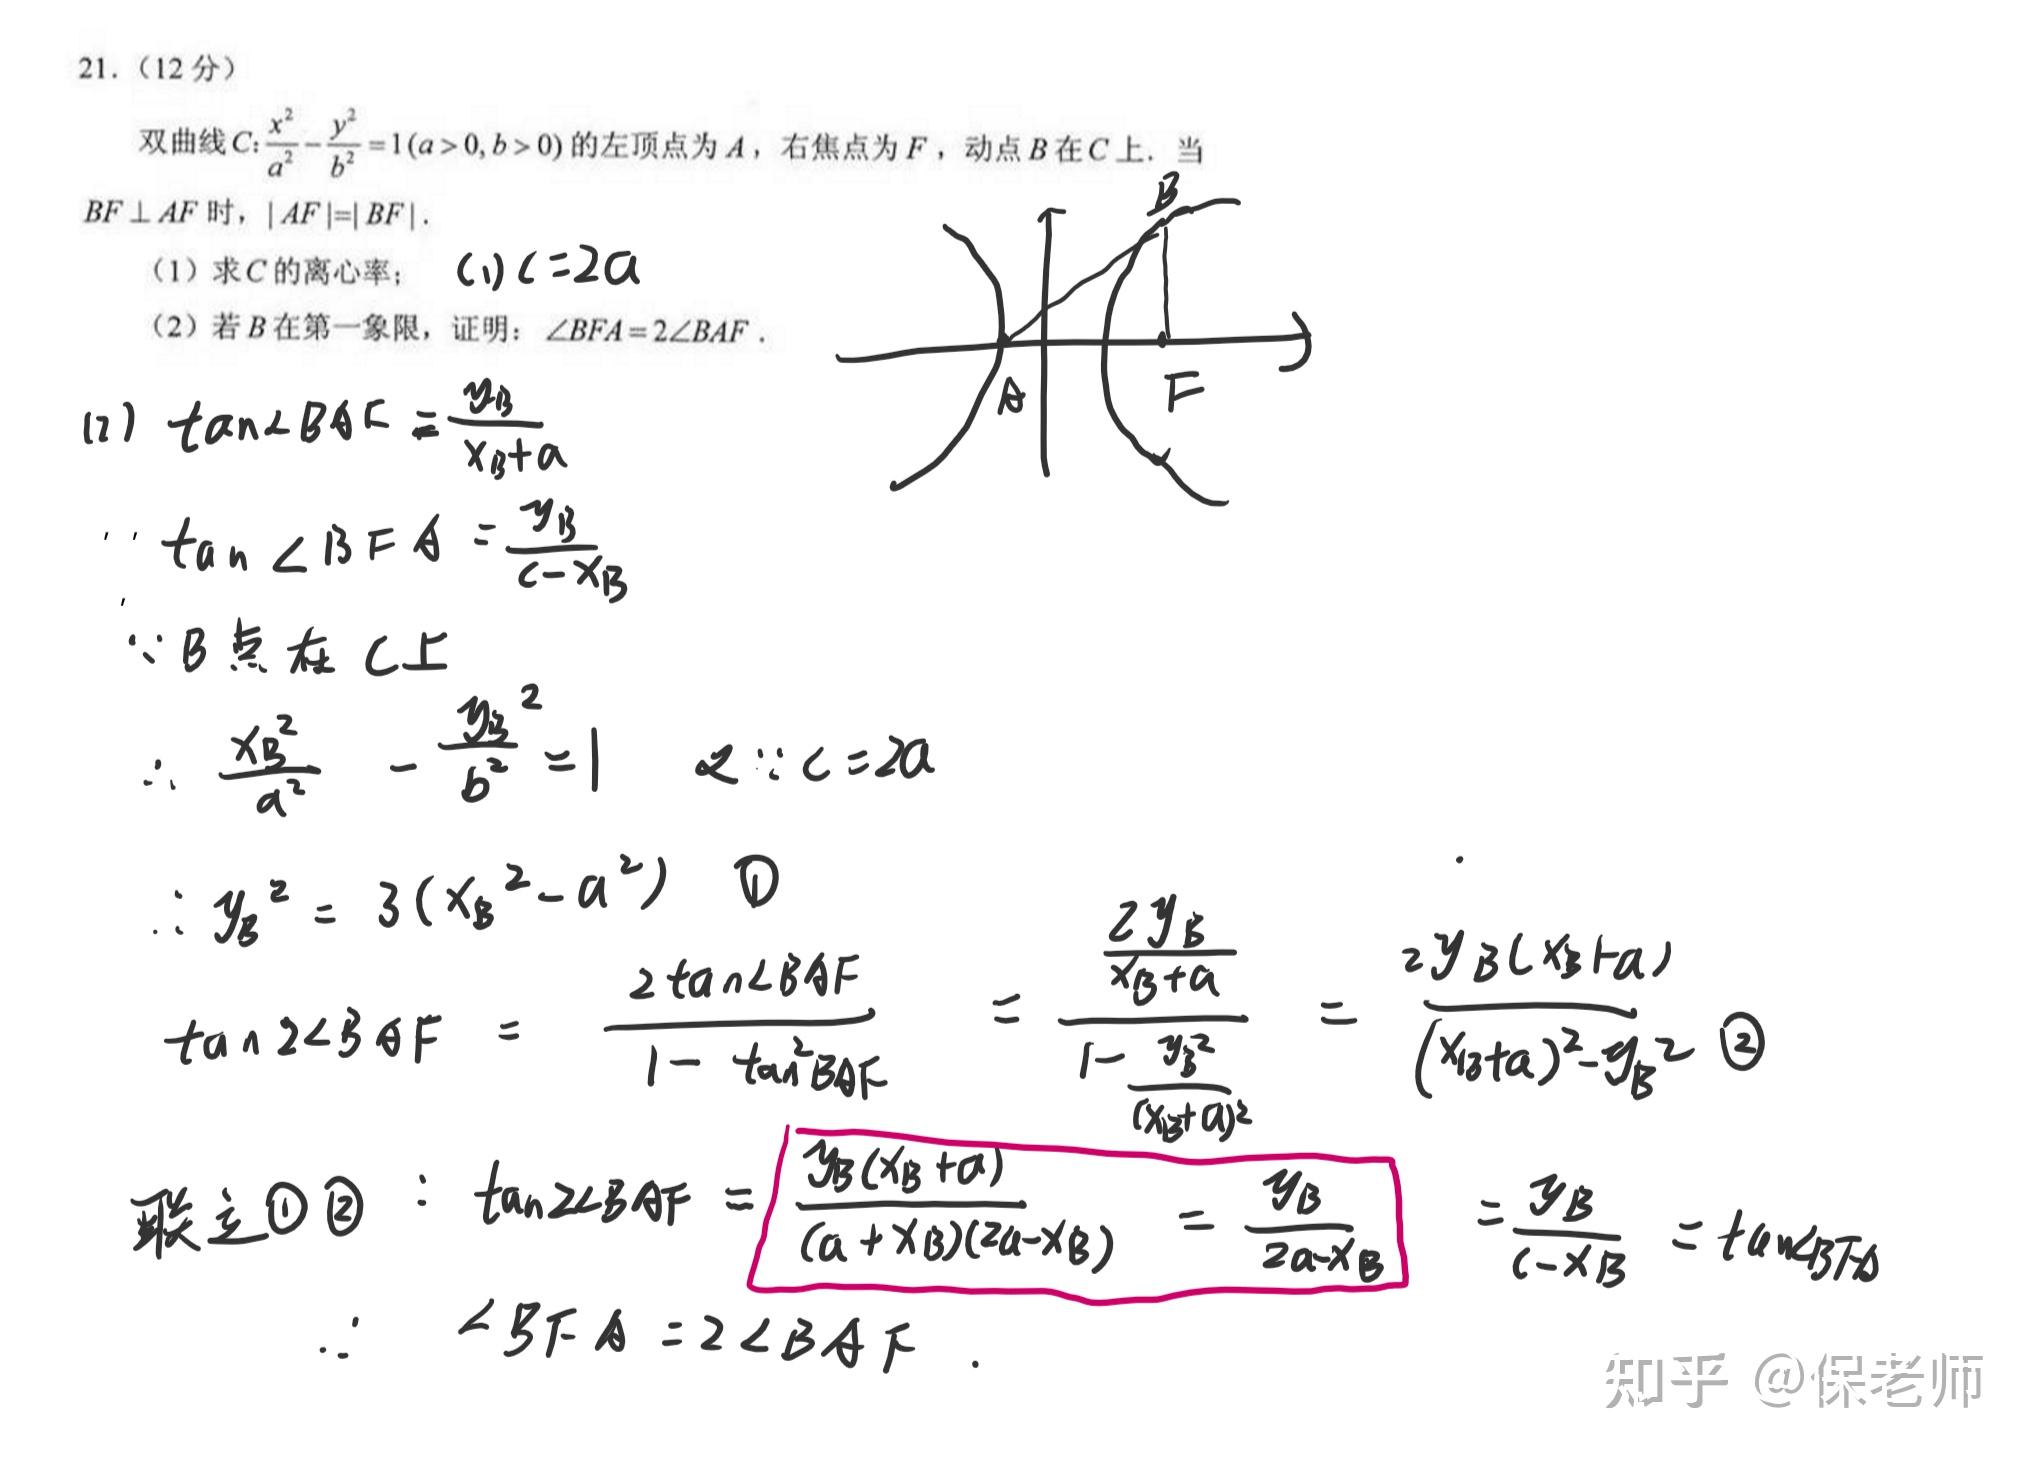 21.（12 分）
双曲线 C: x²/a² − y²/b² = 1 (a > 0, b > 0) 的左顶点为 A，右焦点为 F，动点 B 在 C 上．当
BF ⊥ AF 时，| AF |=| BF |．
（1）求 C 的离心率；
(1) c=2a
（2）若 B 在第一象限，证明：∠BFA = 2∠BAF．
B
A
F
(2) tan∠BAF = y_B/(x_B+a)
tan∠BFA = y_B/(c−x_B)
∵ B 点 在 C上
∴ x_B²/a² − y_B²/b² = 1 又∵ c=2a
∴ y_B² = 3(x_B²−a²) ①
tan2∠BAF = 2tan∠BAF/(1−tan²BAF) = (2y_B/(x_B+a))/(1−y_B²/(x_B+a)²) = 2y_B(x_B+a)/((x_B+a)²−y_B²) ②
联立①② : tan2∠BAF = y_B(x_B+a)/((a+x_B)(2a−x_B)) = y_B/(2a−x_B) = y_B/(c−x_B) = tan∠BFA
∴ ∠BFA = 2∠BAF .
知乎 @保老师